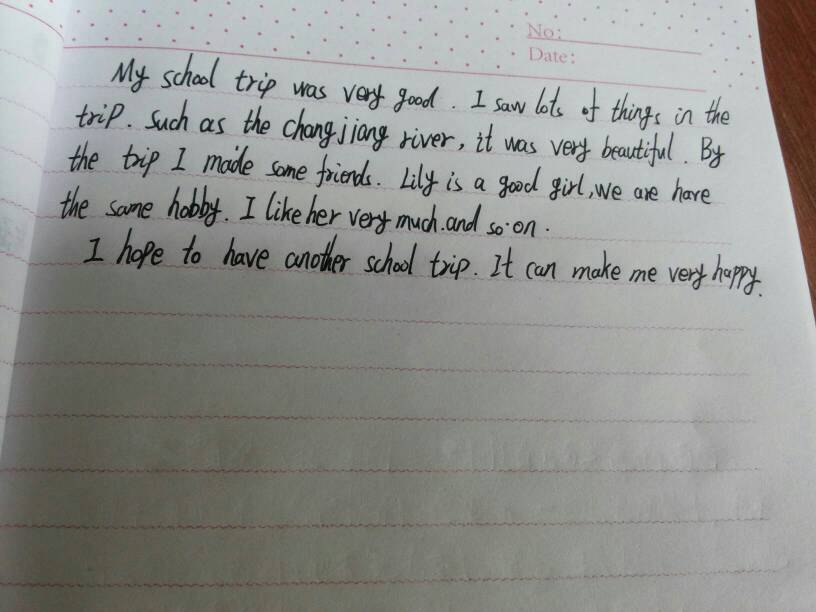 No:
Date:
My school trip was very good. I saw lots of things in the
trip. Such as the changjiang river, it was very beautiful. By
the trip I made some friends. Lily is a good girl, we are have
the same hobby. I like her very much. and so on.
I hope to have another school trip. It can make me very happy.